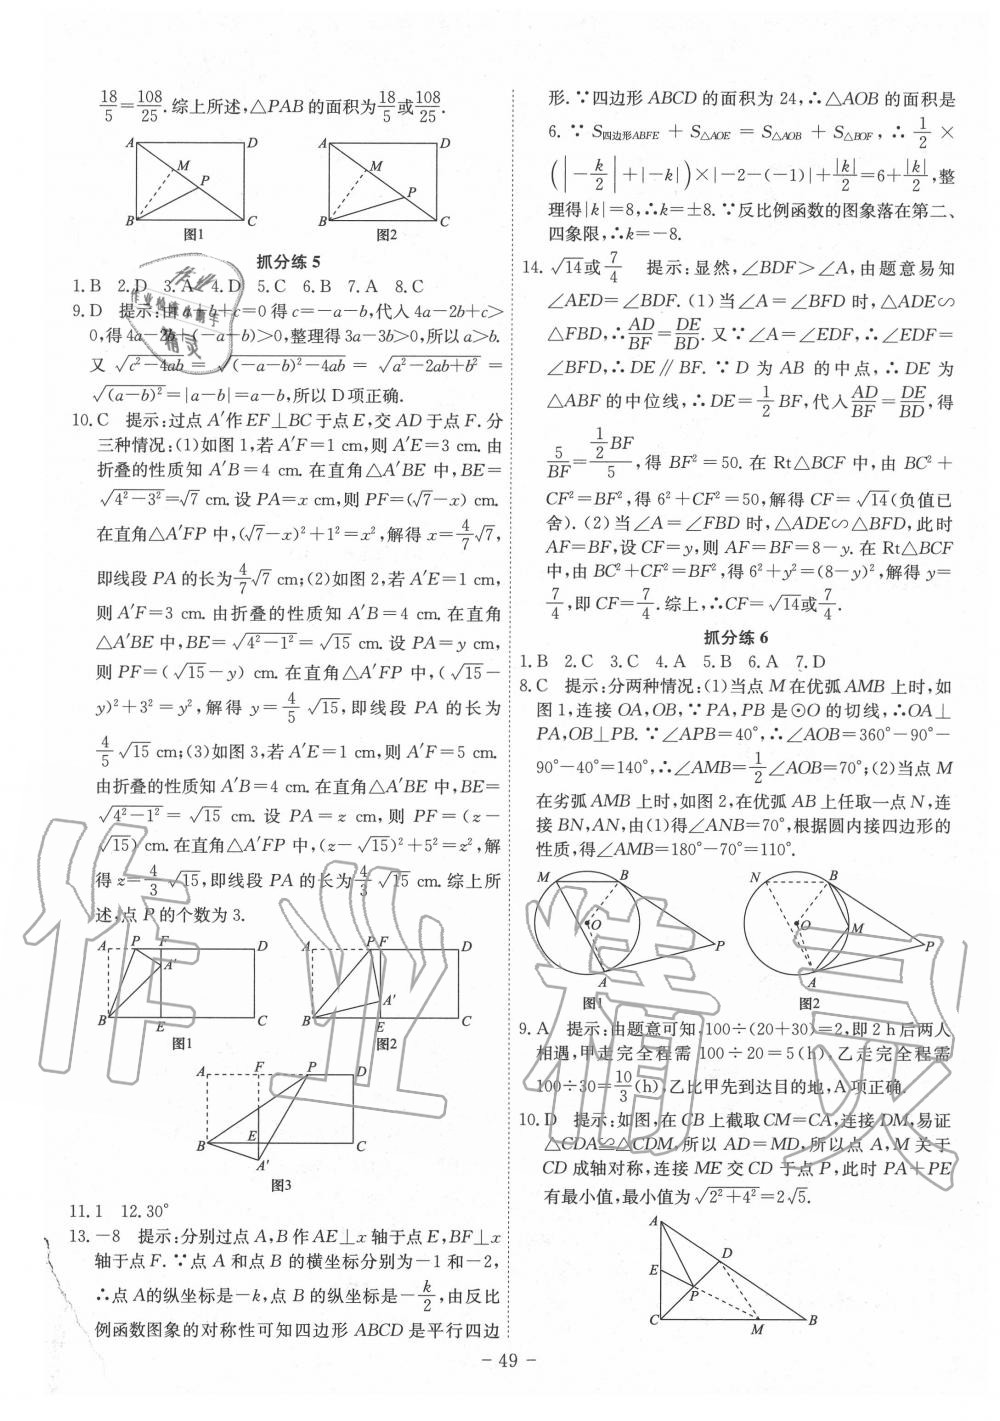 18/5=108/25.综上所述,△PAB的面积为18/5或108/25.
A D A D
M M
P P
B C B C
图1 图2
抓分练5
1.B 2.D 3.A 4.D 5.C 6.B 7.A 8.C
9.D 提示:由a+b+c=0得c=-a-b,代入4a-2b+c>
0,得4a-2b+(-a-b)>0,整理得3a-3b>0,所以a>b.
又√(c²-4ab)=√((-a-b)²-4ab)=√(a²-2ab+b²)=
√((a-b)²)=|a-b|=a-b,所以D项正确.
10.C 提示:过点A′作EF⊥BC于点E,交AD于点F.分
三种情况:(1)如图1,若A′F=1 cm,则A′E=3 cm.由
折叠的性质知A′B=4 cm.在直角△A′BE中,BE=
√(4²-3²)=√7 cm.设PA=x cm,则PF=(√7-x) cm.
在直角△A′FP中,(√7-x)²+1²=x²,解得x=4/7√7,
即线段PA的长为4/7√7 cm;(2)如图2,若A′E=1 cm,
则A′F=3 cm.由折叠的性质知A′B=4 cm.在直角
△A′BE中,BE=√(4²-1²)=√15 cm.设PA=y cm,
则PF=(√15-y) cm.在直角△A′FP中,(√15-
y)²+3²=y²,解得y=4/5√15,即线段PA的长为
4/5√15 cm;(3)如图3,若A′E=1 cm,则A′F=5 cm.
由折叠的性质知A′B=4 cm.在直角△A′BE中,BE=
√(4²-1²)=√15 cm.设PA=z cm,则PF=(z-
√15) cm.在直角△A′FP中,(z-√15)²+5²=z²,解
得z=4/3√15,即线段PA的长为4/3√15 cm.综上所
述,点P的个数为3.
A P F D A P F D
A′
A′
B E C B E C
图1 图2
A F P D
B E C
A′
图3
11.1 12.30°
13.-8 提示:分别过点A,B作AE⊥x轴于点E,BF⊥x
轴于点F.∵点A和点B的横坐标分别为-1和-2,
∴点A的纵坐标是-k,点B的纵坐标是-k/2,由反比
例函数图象的对称性可知四边形ABCD是平行四边
形.∵四边形ABCD的面积为24,∴△AOB的面积是
6.∵S四边形ABFE+S△AOE=S△AOB+S△BOF,∴1/2×
(|-k/2|+|-k|)×|-2-(-1)|+|k|/2=6+|k|/2,整
理得|k|=8,∴k=±8.∵反比例函数的图象落在第二、
四象限,∴k=-8.
14.√14或7/4 提示:显然,∠BDF>∠A,由题意易知
∠AED=∠BDF.(1)当∠A=∠BFD时,△ADE∽
△FBD,∴AD/BF=DE/BD.又∵∠A=∠EDF,∴∠EDF=
∠BFD,∴DE∥BF.∵D为AB的中点,∴DE为
△ABF的中位线,∴DE=1/2BF,代入AD/BF=DE/BD,得
5/BF=(1/2BF)/5,得BF²=50.在Rt△BCF中,由BC²+
CF²=BF²,得6²+CF²=50,解得CF=√14(负值已
舍).(2)当∠A=∠FBD时,△ADE∽△BFD,此时
AF=BF,设CF=y,则AF=BF=8-y.在Rt△BCF
中,由BC²+CF²=BF²,得6²+y²=(8-y)²,解得y=
7/4,即CF=7/4.综上,∴CF=√14或7/4.
抓分练6
1.B 2.C 3.C 4.A 5.B 6.A 7.D
8.C 提示:分两种情况:(1)当点M在优弧AMB上时,如
图1,连接OA,OB,∵PA,PB是⊙O的切线,∴OA⊥
PA,OB⊥PB.∵∠APB=40°,∴∠AOB=360°-90°-
90°-40°=140°,∴∠AMB=1/2∠AOB=70°;(2)当点M
在劣弧AMB上时,如图2,在优弧AB上任取一点N,连
接BN,AN,由(1)得∠ANB=70°,根据圆内接四边形的
性质,得∠AMB=180°-70°=110°.
M B N B
O O M
P P
A A
图1 图2
9.A 提示:由题意可知,100÷(20+30)=2,即2 h后两人
相遇,甲走完全程需100÷20=5(h),乙走完全程需
100÷30=10/3(h),乙比甲先到达目的地,A项正确.
10.D 提示:如图,在CB上截取CM=CA,连接DM,易证
△CDA≌△CDM,所以AD=MD,所以点A,M关于
CD成轴对称,连接ME交CD于点P,此时PA+PE
有最小值,最小值为√(2²+4²)=2√5.
A
D
E
P
C M B
- 49 -
作业精灵
作业
作业检查小助手
精灵